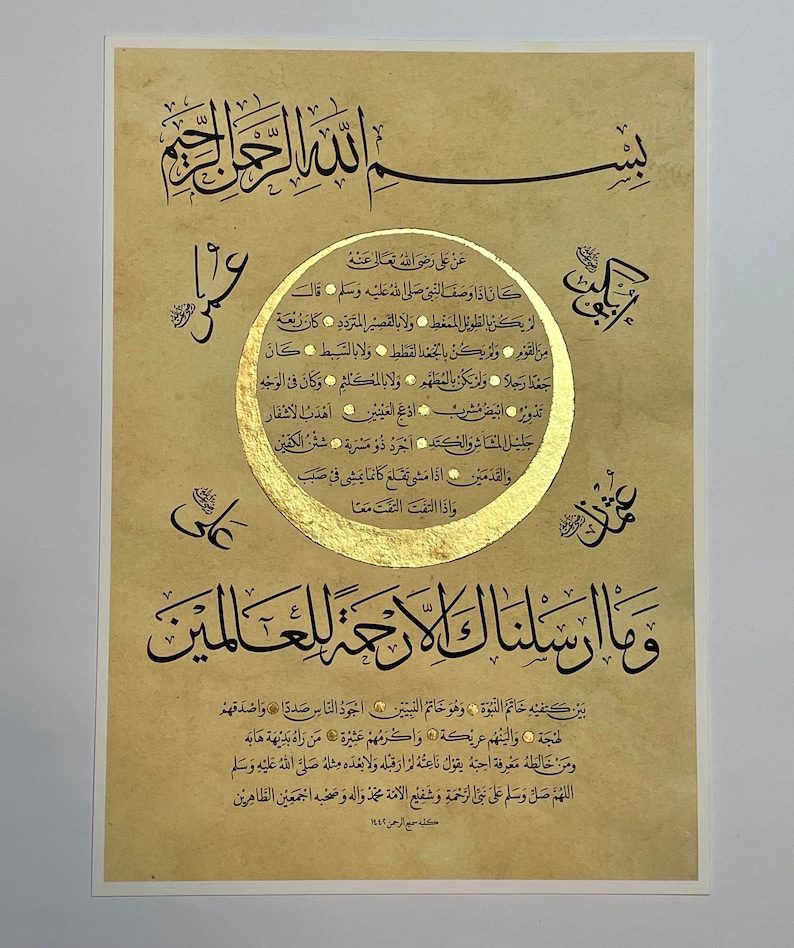 بِسْمِ اللهِ الرَّحْمٰنِ الرَّحِيْمِ
أبو بكر
عمر
عَنْ عَلِى رَضِىَ اللهُ تَعَالىٰ عَنْهُ
كَانَ اِذَا وَصَفَ النَّبِىَّ صَلَى اللهُ عَلَيْهِ وَسَلَمَ قَالَ
لَمْ يَكُنْ بِالطَّوِيْلِ المُمَغَّطِ وَلَا بِالقَصِيْرِ المُتَرَدِّدِ كَانَ رَبْعَةً
مِنَ القَوْمِ وَلَمْ يَكُنْ بِالْجَعْدِ القَطَطِ وَلَا بِالسَّبِطِ كَانَ
جَعْدًا رَجِلًا وَلَمْ يَكُنْ بِالمُطَهَّمِ وَلَا بِالمُكَلْثَمِ وَكَانَ فِى الوَجْهِ
تَدْوِيْرٌ اَبْيَضُ مُشْرَبٌ اَدْعَجُ العَيْنَيْنِ اَهْدَبُ الْاَشْفَارِ
جَلِيْلُ المُشَاشِ وَالْكَتَدِ اَجْرَدُ ذُوْ مَسْرَبَةٍ شَثْنُ الكَفَّيْنِ
وَالقَدَمَيْنِ اِذَا مَشَى تَقَلَّعَ كَاَنَّمَا يَمْشِى فِىْ صَبَبٍ
وَاِذَا التَفَتَ التَفَتَ مَعًا
عثمان
على
وَمَا اَرْسَلْنَاكَ اِلَّا رَحْمَةً لِلْعَالَمِيْنَ
بَيْنَ كَتِفَيْهِ خَاتَمُ النُّبُوَّةِ وَهُوَ خَاتَمُ النَّبِيِّيْنَ اَجْوَدُ النَّاسِ صَدْرًا وَاَصْدَقُهُمْ
لَهْجَةً وَاَلْيَنُهُمْ عَرِيْكَةً وَاَكْرَمُهُمْ عَشِيْرَةً مَنْ رَاٰهُ بَدِيْهَةً هَابَهُ
وَمَنْ خَالَطَهُ مَعْرِفَةً اَحَبَّهُ يَقُوْلُ نَاعِتُهُ لَمْ اَرَ قَبْلَهُ وَلَا بَعْدَهُ مِثْلَهُ صَلَّى اللهُ عَلَيْهِ وَسَلَم
اللهُمَّ صَلِّ وَسَلِّمْ عَلىٰ نَبِىِّ الرَّحْمَةِ وَشَفِيْعِ الاُمَّةِ مُحَمَّدٍ وَاٰلِهِ وَصَحْبِهِ اَجْمَعِيْنَ الطَّاهِرِيْنَ
كتبه سميع الرحمن ١٤٤٢